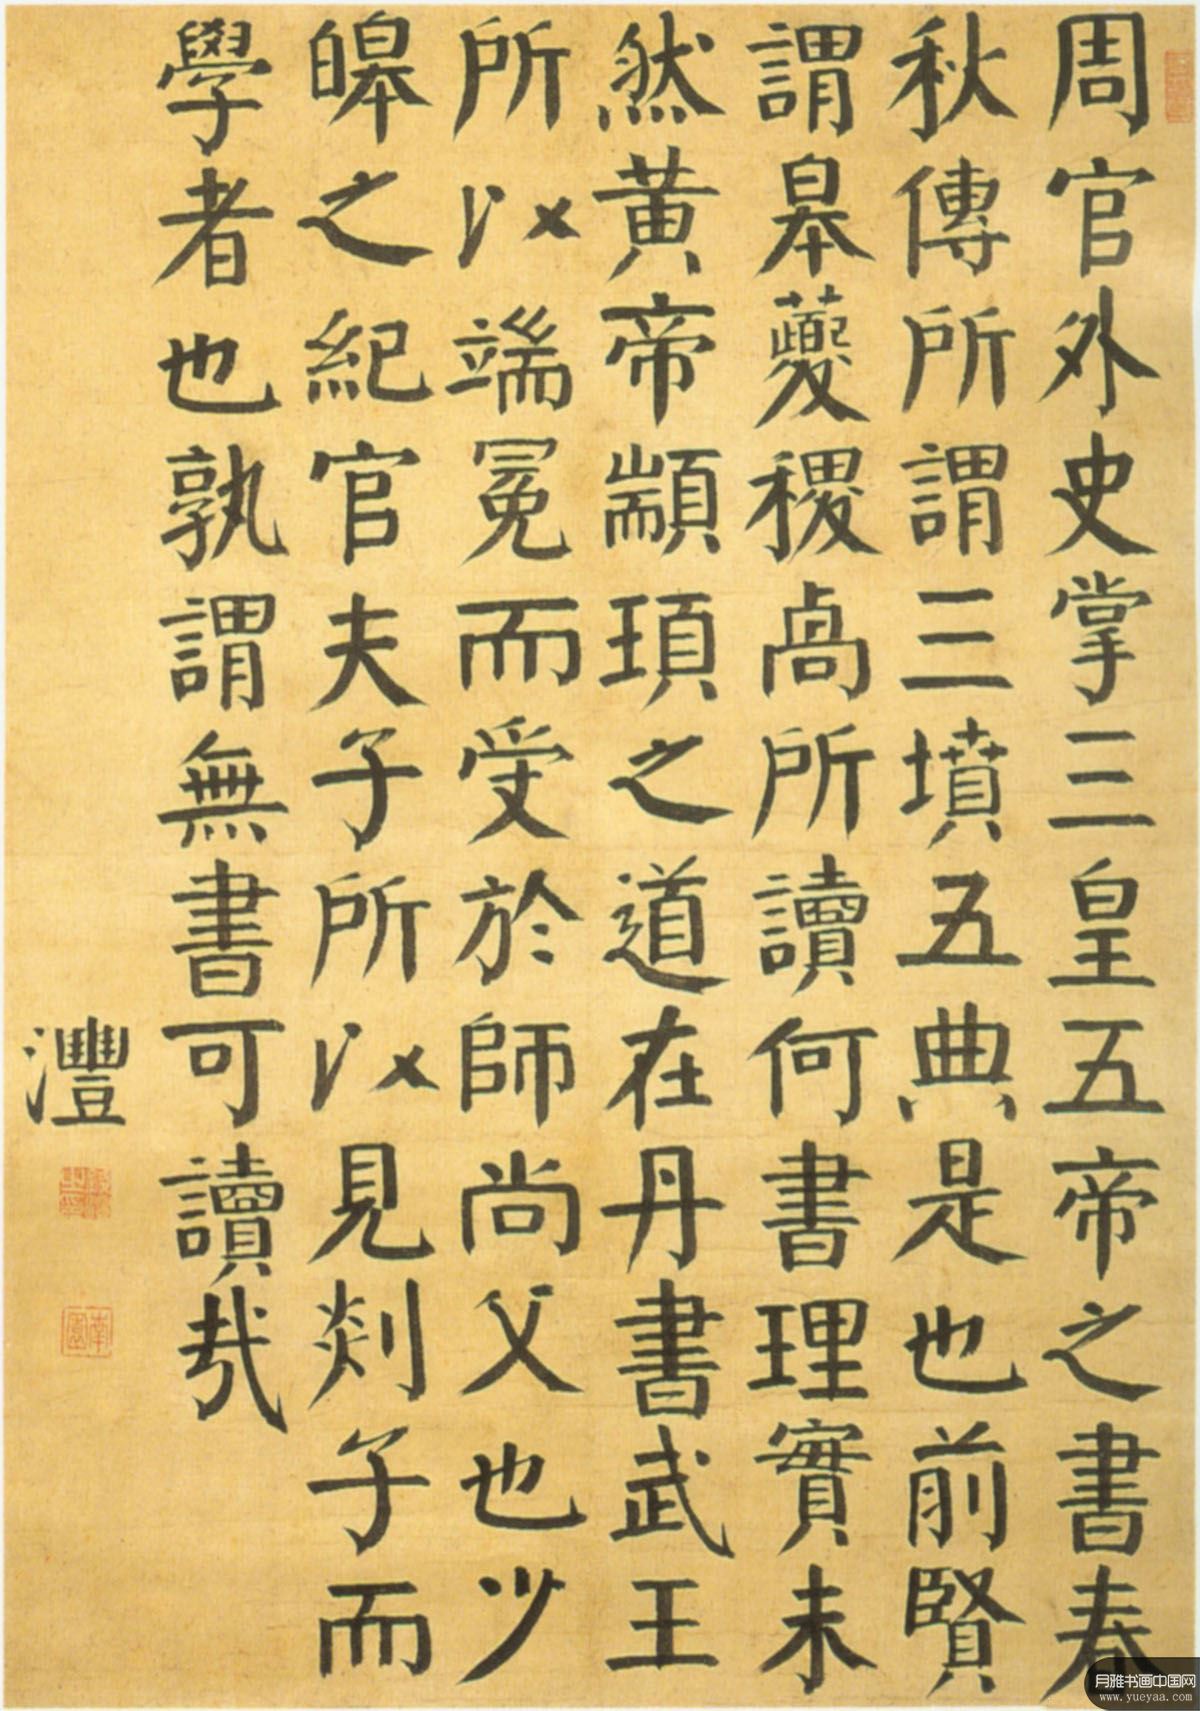 周官外史掌三皇五帝之書春
秋傳所謂三墳五典是也前賢
謂皋夔稷卨所讀何書理實未
然黃帝顓頊之道在丹書武王
所以端冕而受於師尚父也少
皞之紀官夫子所以見郯子而
學者也孰謂無書可讀哉
灃
月雅书画中国网
www.yueyaa.com